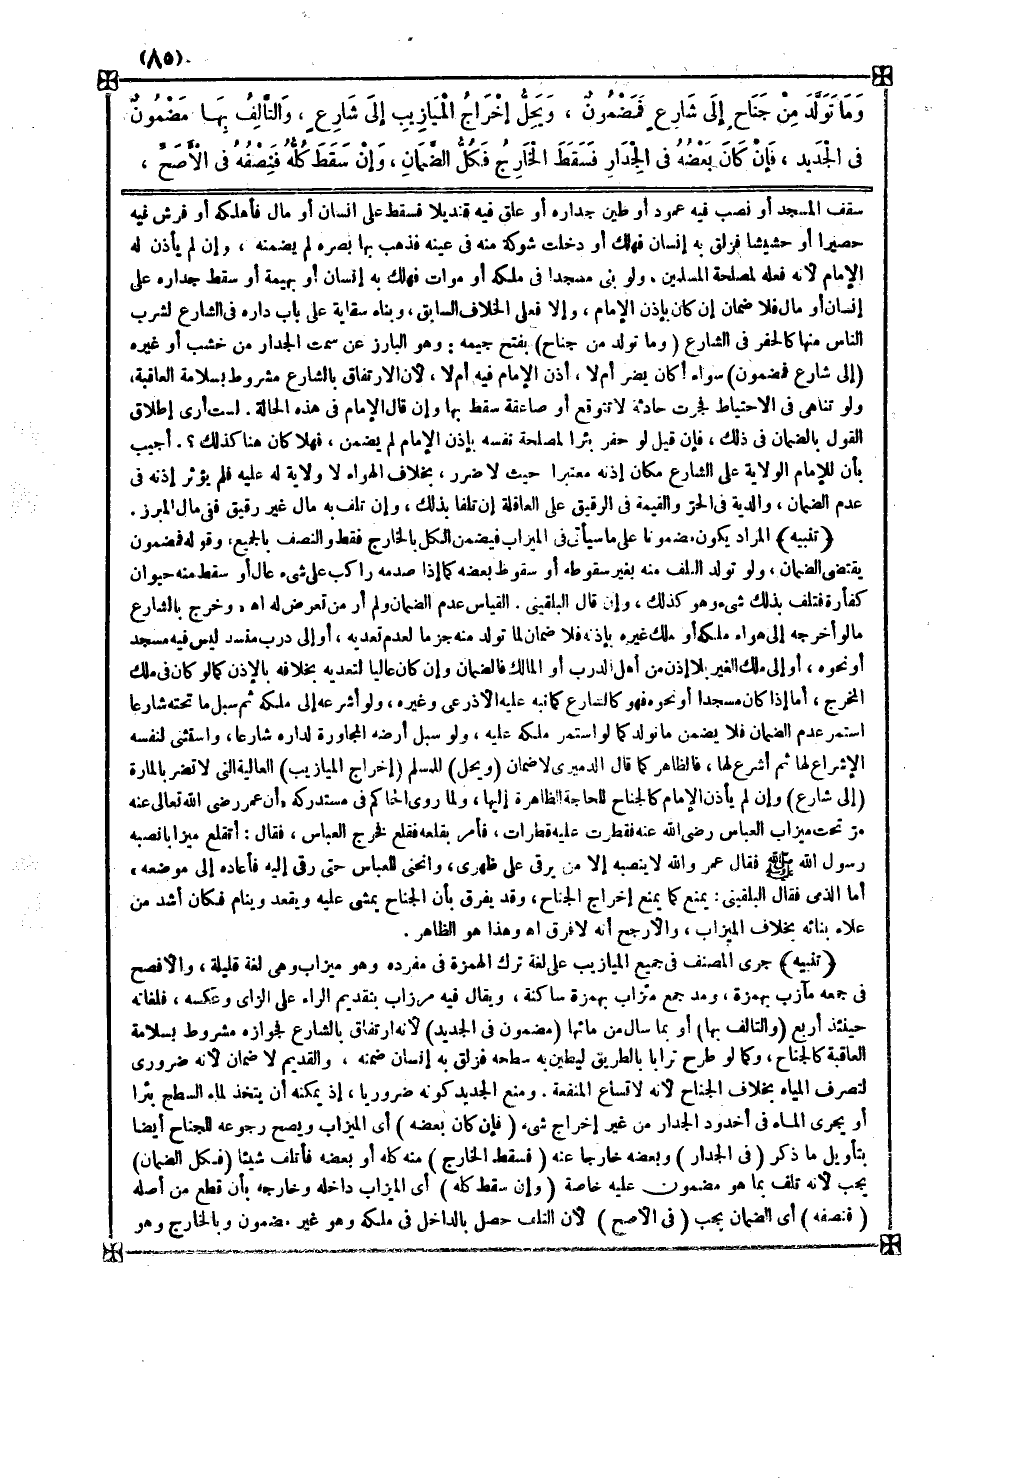 (٨٥)
وَمَا تَوَلَّدَ مِنْ جَنَاحٍ إِلَى شَارِعٍ فَمَضْمُونٌ ، وَيَحِلُّ إِخْرَاجُ الْمَيَازِيبِ إِلَى شَارِعٍ ، وَالتَّالِفُ بِهَا مَضْمُونٌ
فى الْجَدِيد ، فَإِنْ كَانَ بَعْضُهُ فى الْجِدَارِ فَسَقَطَ الْخَارِجُ فَكُلُّ الضَّمَانِ ، وَإِنْ سَقَطَ كُلُّهُ فَنِصْفُهُ فى الْأَصَحِّ ،
سقف المسجد أو نصب فيه عمود أو طين جداره أو علق فيه قنديلا فسقط على انسان أو مال فأهلكه أو فرش فيه
حصيرا أو حشيشا فزلق به إنسان فهلك أو دخلت شوكة منه فى عينه فذهب بها بصره لم يضمنه ، وإن لم يأذن له
الإمام لأنه فعله لمصلحة المسلمين . ولو بنى مسجدا فى ملكه أو موات فهلك به إنسان أو بهيمة أو سقط جداره على
إنسان أو مال فلا ضمان إن كان بإذن الإمام ، وإلا فعلى الخلاف السابق ، وبناء سقاية على باب داره فى الشارع لشرب
الناس منها كالحفر فى الشارع ( وما تولد من جناح ) بفتح جيمه : وهو البارز عن سمت الجدار من خشب أو غيره
(إلى شارع فمضمون) سواء أكان يضر أم لا ، أذن الإمام فيه أم لا ، لأن الارتفاق بالشارع مشروط بسلامة العاقبة،
ولو تناهى فى الاحتياط فجرت حادثة لا تتوقع أو صاعقة سقط بها وإن قال الإمام فى هذه الحالة . لست أرى إطلاق
القول بالضمان فى ذلك ، فإن قيل لو حفر بئرا لمصلحة نفسه بإذن الإمام لم يضمن ، فهلا كان هنا كذلك ؟ . أجيب
بأن للإمام الولاية على الشارع فكان إذنه معتبرا حيث لا ضرر ، بخلاف الهواء لا ولاية له عليه فلم يؤثر إذنه فى
عدم الضمان ، والدية فى الحر والقيمة فى الرقيق على العاقلة إن تلفا بذلك ، وإن تلف به مال غير رقيق ففى مال المبرز .
( تنبيه ) المراد يكون مضمونا على ما سيأتى فى الميزاب فيضمن الكل بالخارج فقط والنصف بالجميع، وقوله فمضمون
يقتضى الضمان ، ولو تولد التلف منه بغير سقوطه أو سقوط بعضه كما إذا صدمه راكب على شىء عال أو سقط منه حيوان
كفأرة فتلف بذلك شىء وهو كذلك ، وإن قال البلقينى . القياس عدم الضمان ولم أر من تعرض له اه . وخرج بالشارع
ما لو أخرجه إلى هواء ملكه أو ملك غيره بإذنه فلا ضمان لما تولد منه جزما لعدم تعديه ، أو إلى درب منسد ليس فيه مسجد
أو نحوه ، أو إلى ملك الغير بلا إذن من أهل الدرب أو المالك فالضمان وإن كان عاليا لتعديه بخلافه بالإذن كما لو كان فى ملك
المخرج ، أما إذا كان مسجدا أو نحوه فهو كالشارع كما نبه عليه الأذرعى وغيره ، ولو أشرعه إلى ملكه ثم سبل ما تحته شارعا
استمر عدم الضمان فلا يضمن ما تولد كما لو استمر ملكه عليه ، ولو سبل أرضه المجاورة لداره شارعا، واستثنى لنفسه
الإشراع لها ثم أشرع لها ، فالظاهر كما قال الدميرى لا ضمان (ويحل) للمسلم (إخراج الميازيب) العالية التى لا تضر بالمارة
(إلى شارع) وإن لم يأذن الإمام كالجناح للحاجة الظاهرة إليها ، ولما روى الحاكم فى مستدركه «أن عمر رضى الله تعالى عنه
مر تحت ميزاب العباس رضى الله عنه فقطرت عليه قطرات ، فأمر بقلعه فقلع فخرج العباس ، فقال : أتقلع ميزابا نصبه
رسول الله ﷺ فقال عمر والله لا ينصبه إلا من يرقى على ظهرى، وانحنى للعباس حتى رقى إليه فأعاده إلى موضعه»
أما الذمى فقال البلقينى : يمنع كما يمنع إخراج الجناح ، وقد يفرق بأن الجناح يمشى عليه ويقعد وينام فكان أشد من
علاء بنائه بخلاف الميزاب ، والأرجح أنه لا فرق اه وهذا هو الظاهر .
( تنبيه ) جرى المصنف فى جميع الميازيب على لغة ترك الهمزة فى مفرده وهو ميزاب وهى لغة قليلة ، والأفصح
فى جمعه مآزب بهمزة ، ومد جمع مئزاب بهمزة ساكنة ، ويقال فيه مرزاب بتقديم الراء على الزاى وعكسه ، فلغاته
حينئذ أربع (والتالف بها) أو بما سال من مائها (مضمون فى الجديد) لأنه ارتفاق بالشارع فجوازه مشروط بسلامة
العاقبة كالجناح ، وكما لو طرح ترابا بالطريق ليطين به سطحه فزلق به إنسان ضمنه ، والقديم لا ضمان لأنه ضرورى
لتصرف المياه بخلاف الجناح لأنه لاتساع المنفعة . ومنع الجديد كونه ضروريا ، إذ يمكنه أن يتخذ لماء السطح بئرا
أو يجرى الماء فى أخدود الجدار من غير إخراج شىء ( فإن كان بعضه ) أى الميزاب ويصح رجوعه للجناح أيضا
بتأويل ما ذكر ( فى الجدار ) وبعضه خارجا عنه ( فسقط الخارج ) منه كله أو بعضه فأتلف شيئا (فكل الضمان)
يجب لأنه تلف بما هو مضمون عليه خاصة ( وإن سقط كله ) أى الميزاب داخله وخارجه بأن قطع من أصله
( فنصفه ) أى الضمان يجب ( فى الأصح ) لأن التلف حصل بالداخل فى ملكه وهو غير مضمون وبالخارج وهو